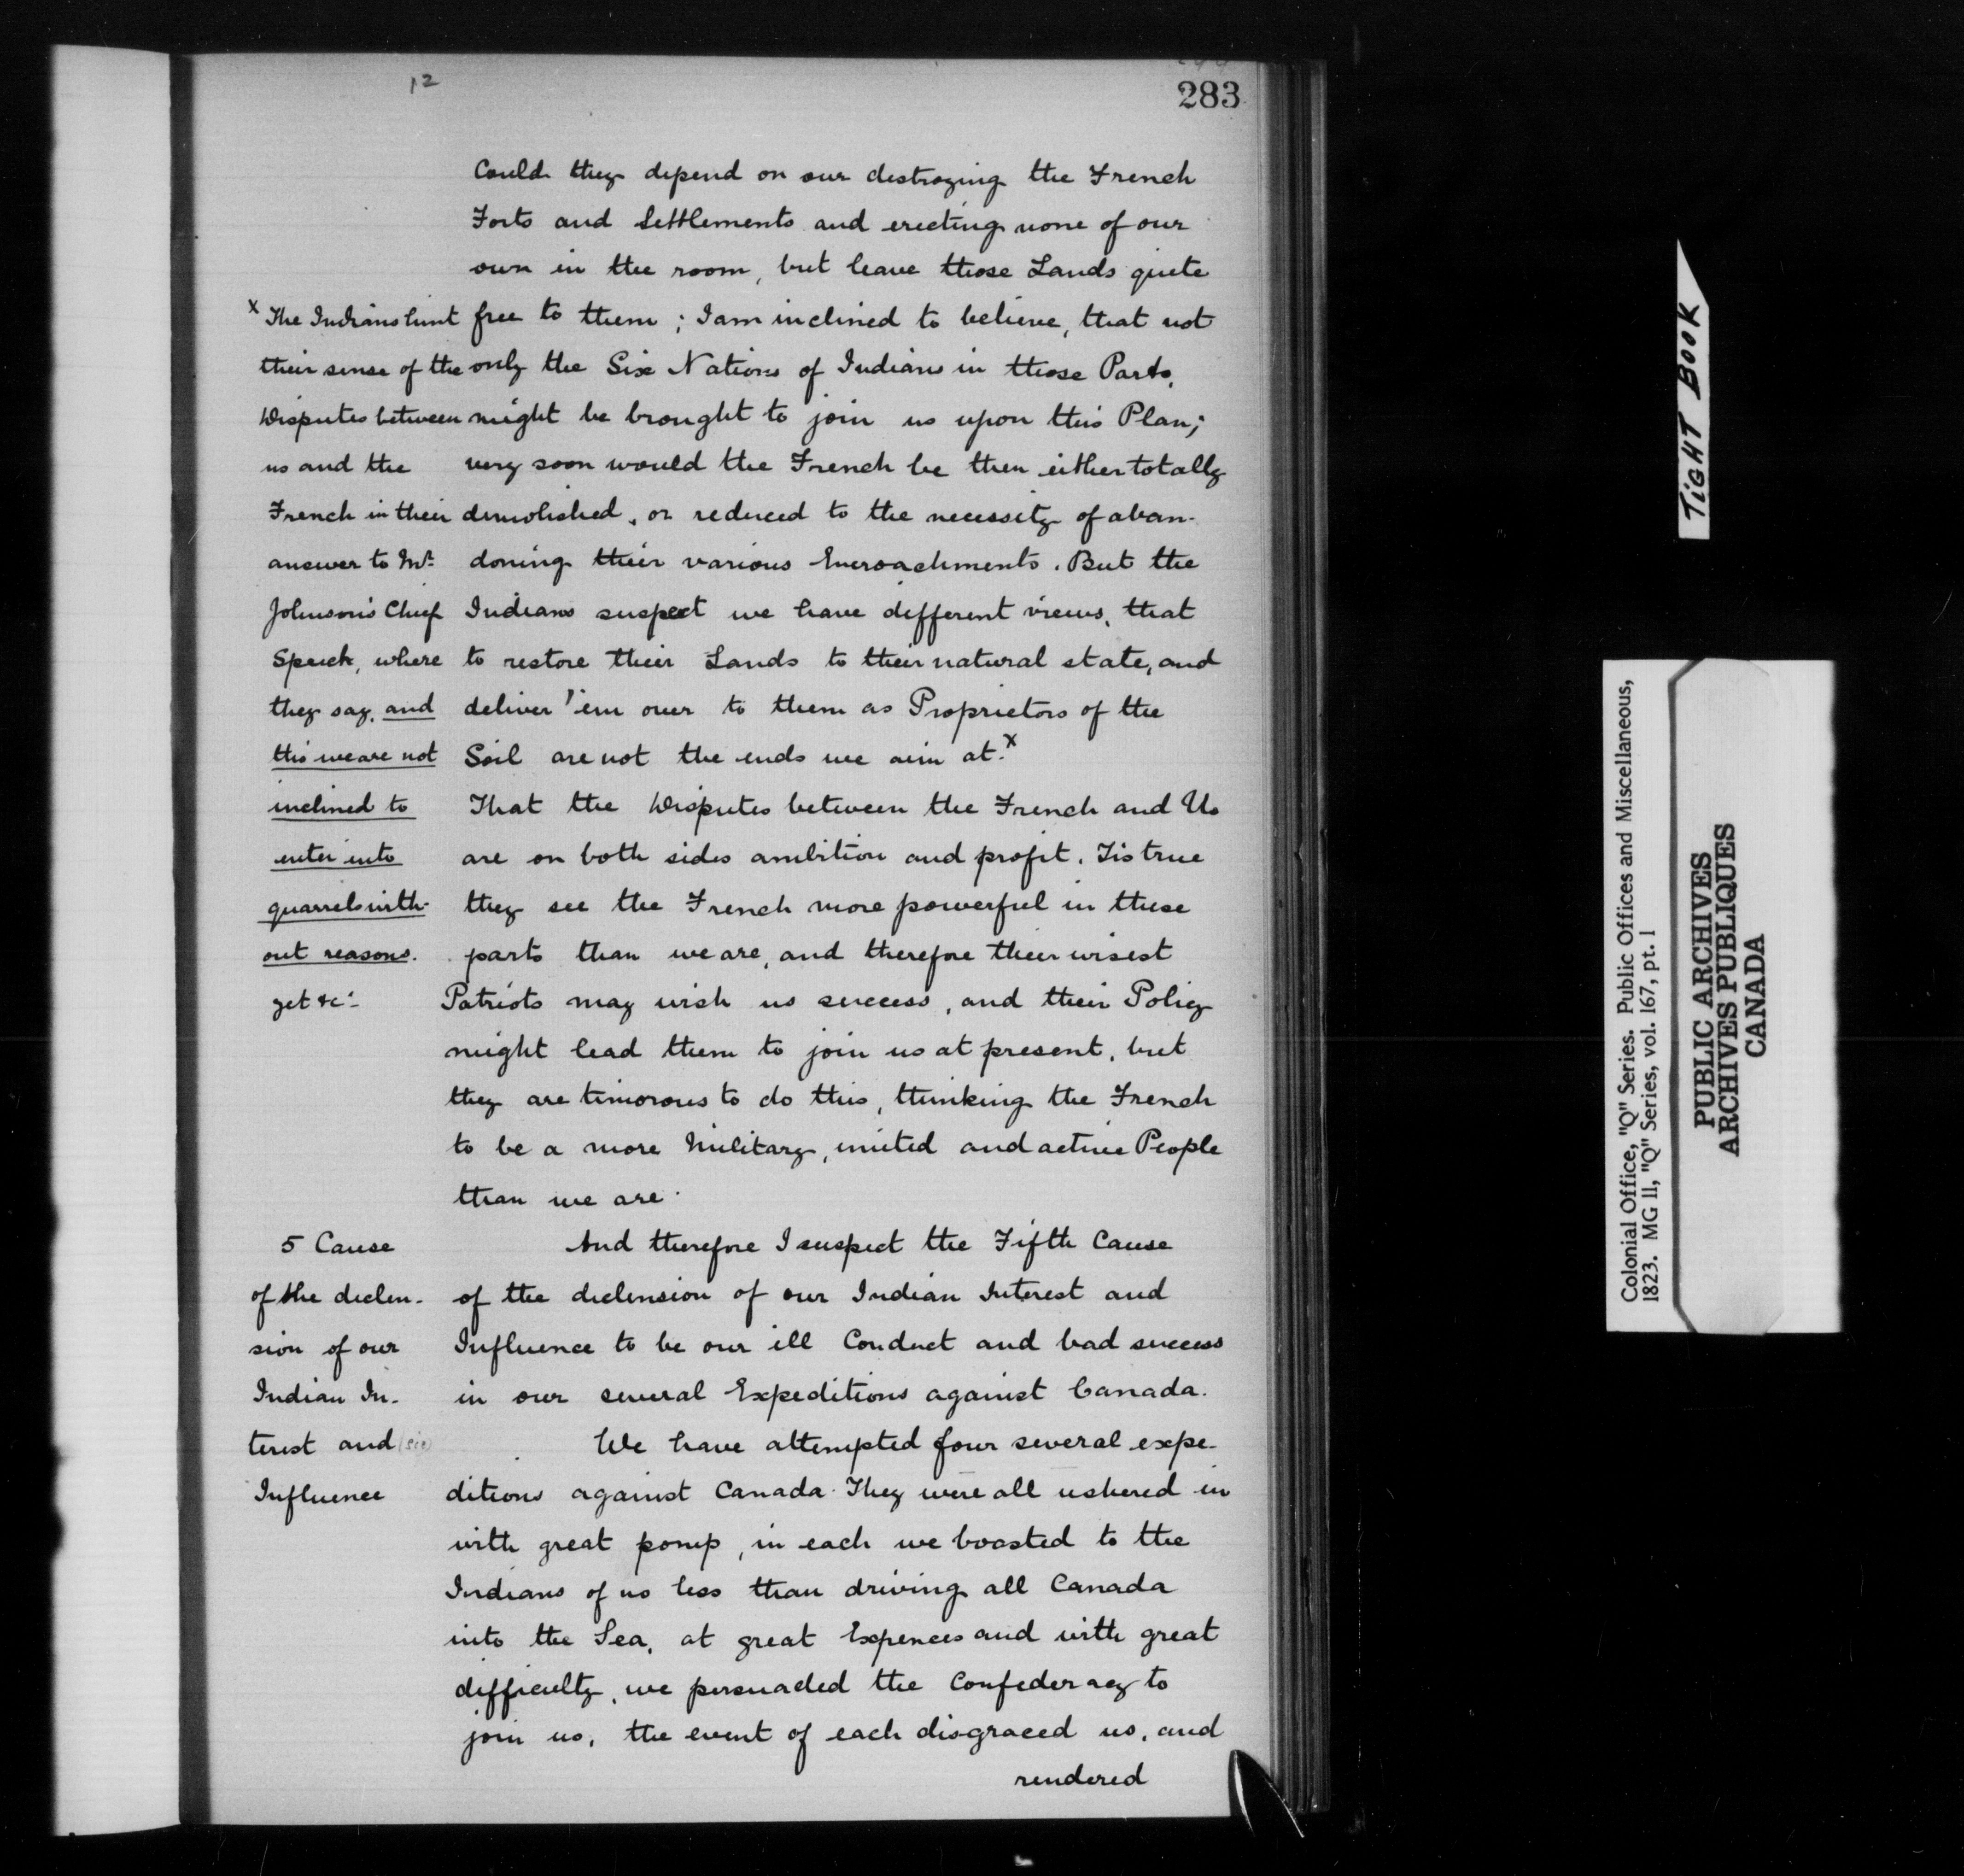 12
283
Could they depend on our destroying the French
Forts and Settlements and erecting none of our
own in the room, but leave those Lands quite
free to them; I am inclined to believe, that not
only the Six Nations of Indians in those Parts,
might be brought to join us upon this Plan;
very soon would the French be then either totally
demolished, or reduced to the necessity of aban-
doning their various Encroachments. But the
Indians suspect we have different views, that
to restore their Lands to their natural state, and
deliver 'em over to them as Proprietors of the
Soil are not the ends we aim at.x
That the Disputes between the French and Us
are on both sides ambition and profit. Tis true
they see the French more powerful in these
parts than we are, and therefore their wisest
Patriots may wish us success, and their Policy
might lead them to join us at present, but
they are timorous to do this, thinking the French
to be a more Military, united and active People
than we are.
x The Indians hint
their sense of the
Disputes between
us and the
French in their
answer to Mr.
Johnson's Chief
Speech, where
they say, and
this we are not
inclined to
enter into
quarrels with-
out reasons.
yet &c.-
5 Cause
of the declen-
sion of our
Indian In-
terest and (sic)
Influence
And therefore I suspect the Fifth Cause
of the declension of our Indian Interest and
Influence to be our ill Conduct and bad success
in our several Expeditions against Canada.
We have attempted four several expe-
ditions against Canada. They were all ushered in
with great pomp, in each we boasted to the
Indians of no less than driving all Canada
into the Sea, at great Expences and with great
difficulty, we persuaded the Confederacy to
join us, the event of each disgraced us, and
rendered
TIGHT BOOK
Colonial Office, "Q" Series. Public Offices and Miscellaneous,
1823. MG 11, "Q" Series, vol. 167, pt. 1
PUBLIC ARCHIVES
ARCHIVES PUBLIQUES
CANADA